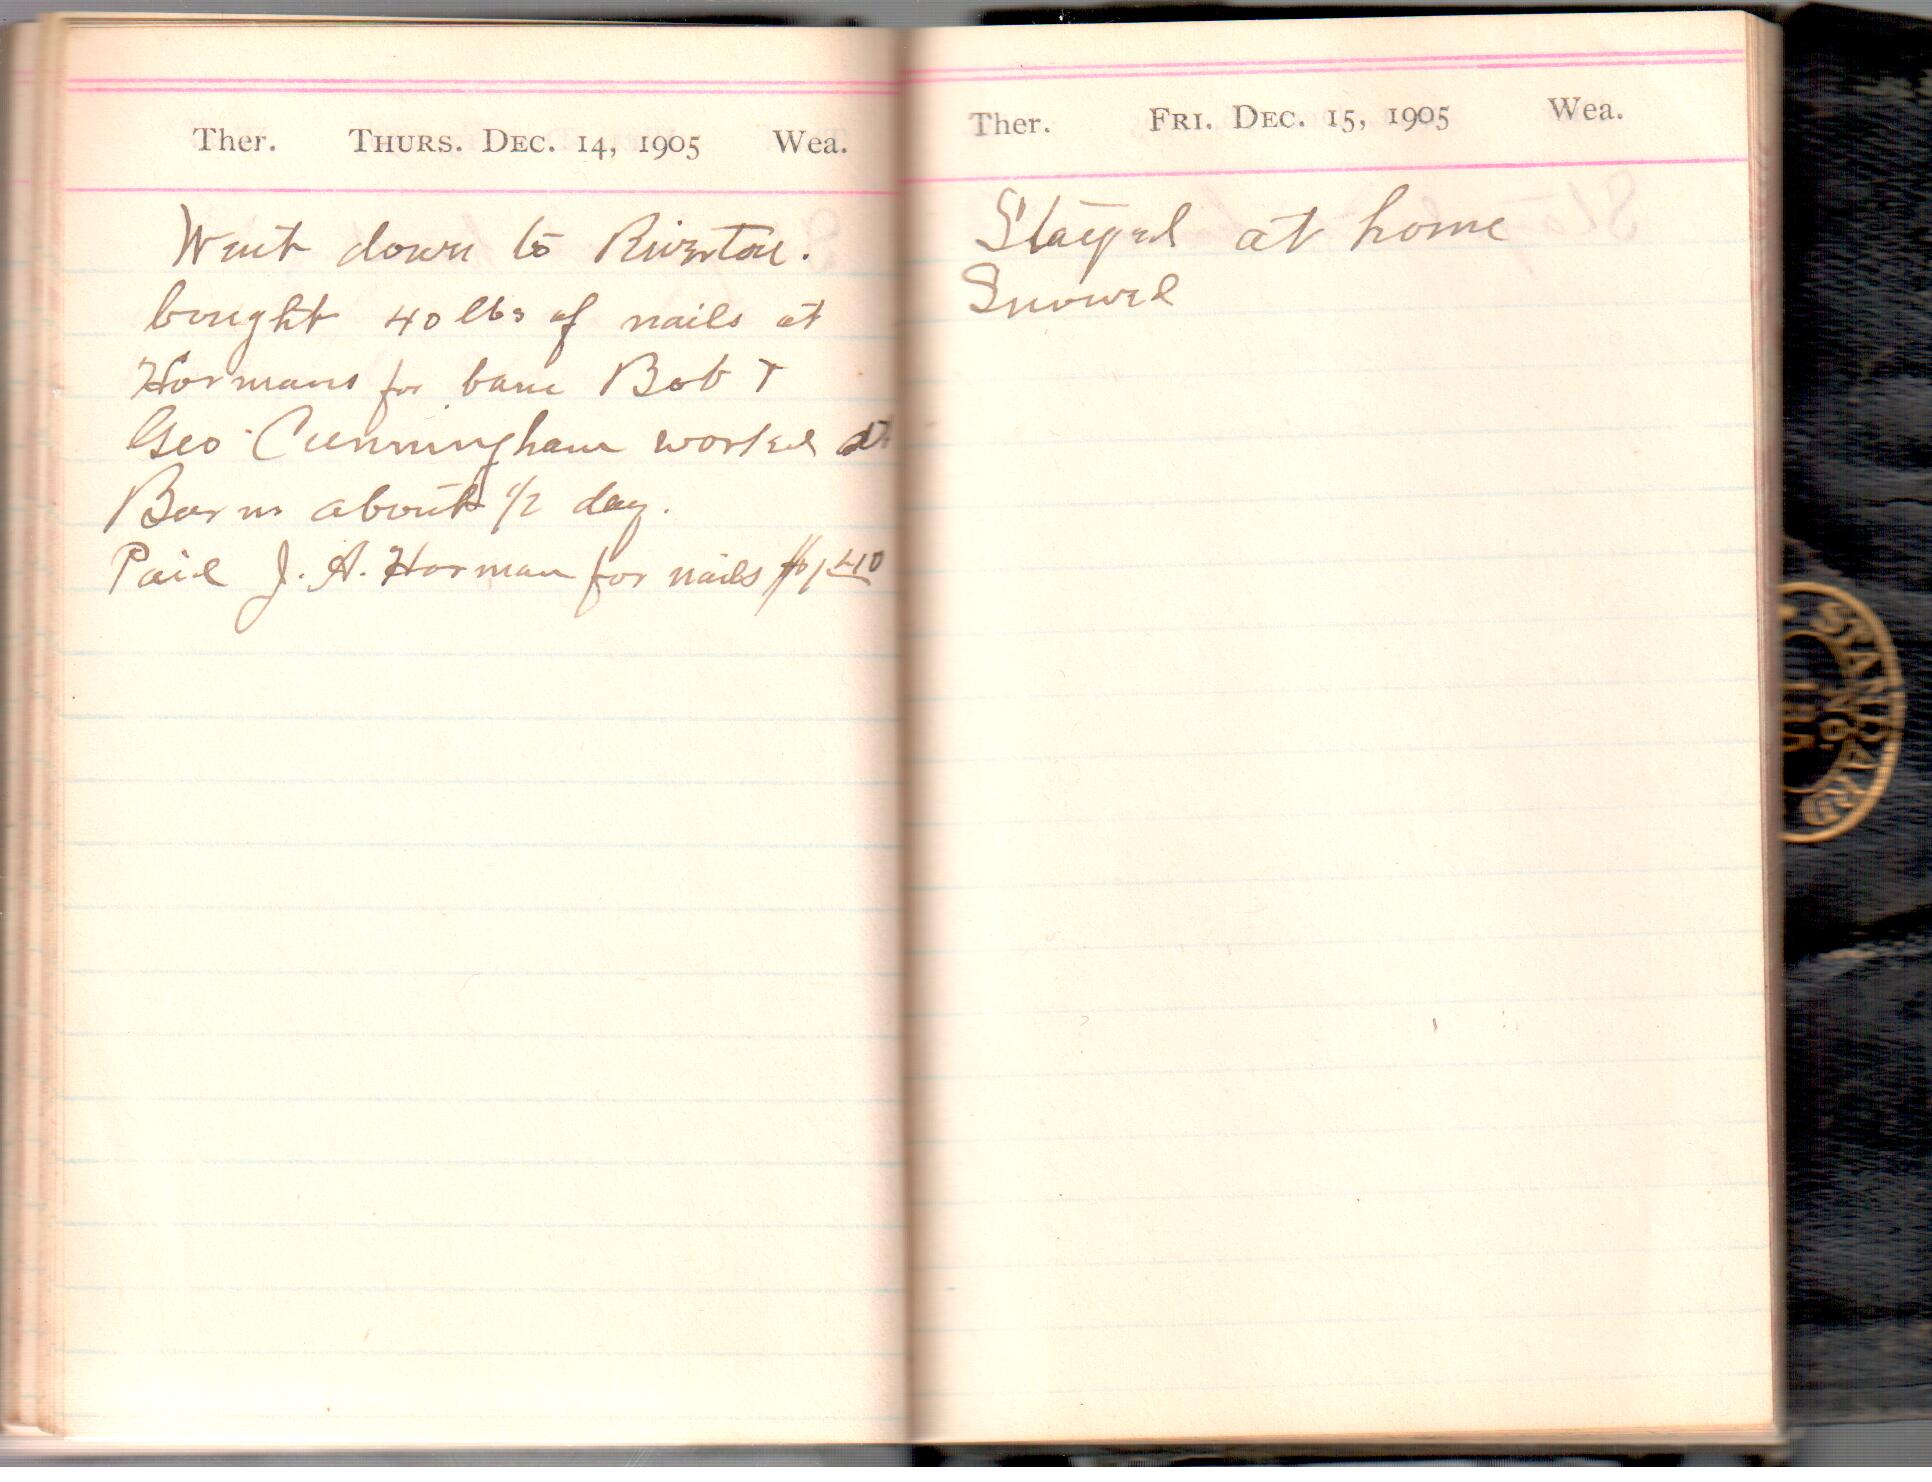 Ther. THURS. DEC. 14, 1905 Wea.
Went down to Riverton.
bought 40 lbs of nails at
Hormans for barn Bob &
Geo Cunningham worked at
Barn about 1/2 day.
Paid J. A. Horman for nails $1.40
Ther. FRI. DEC. 15, 1905 Wea.
Stayed at home
Snowed
STANDARD
NO.